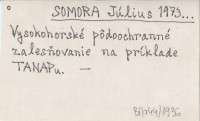 SOMORA Július 1973...
Vysokohorské pôdoochranné
zalesňovanie na príklade
TANAPu. —